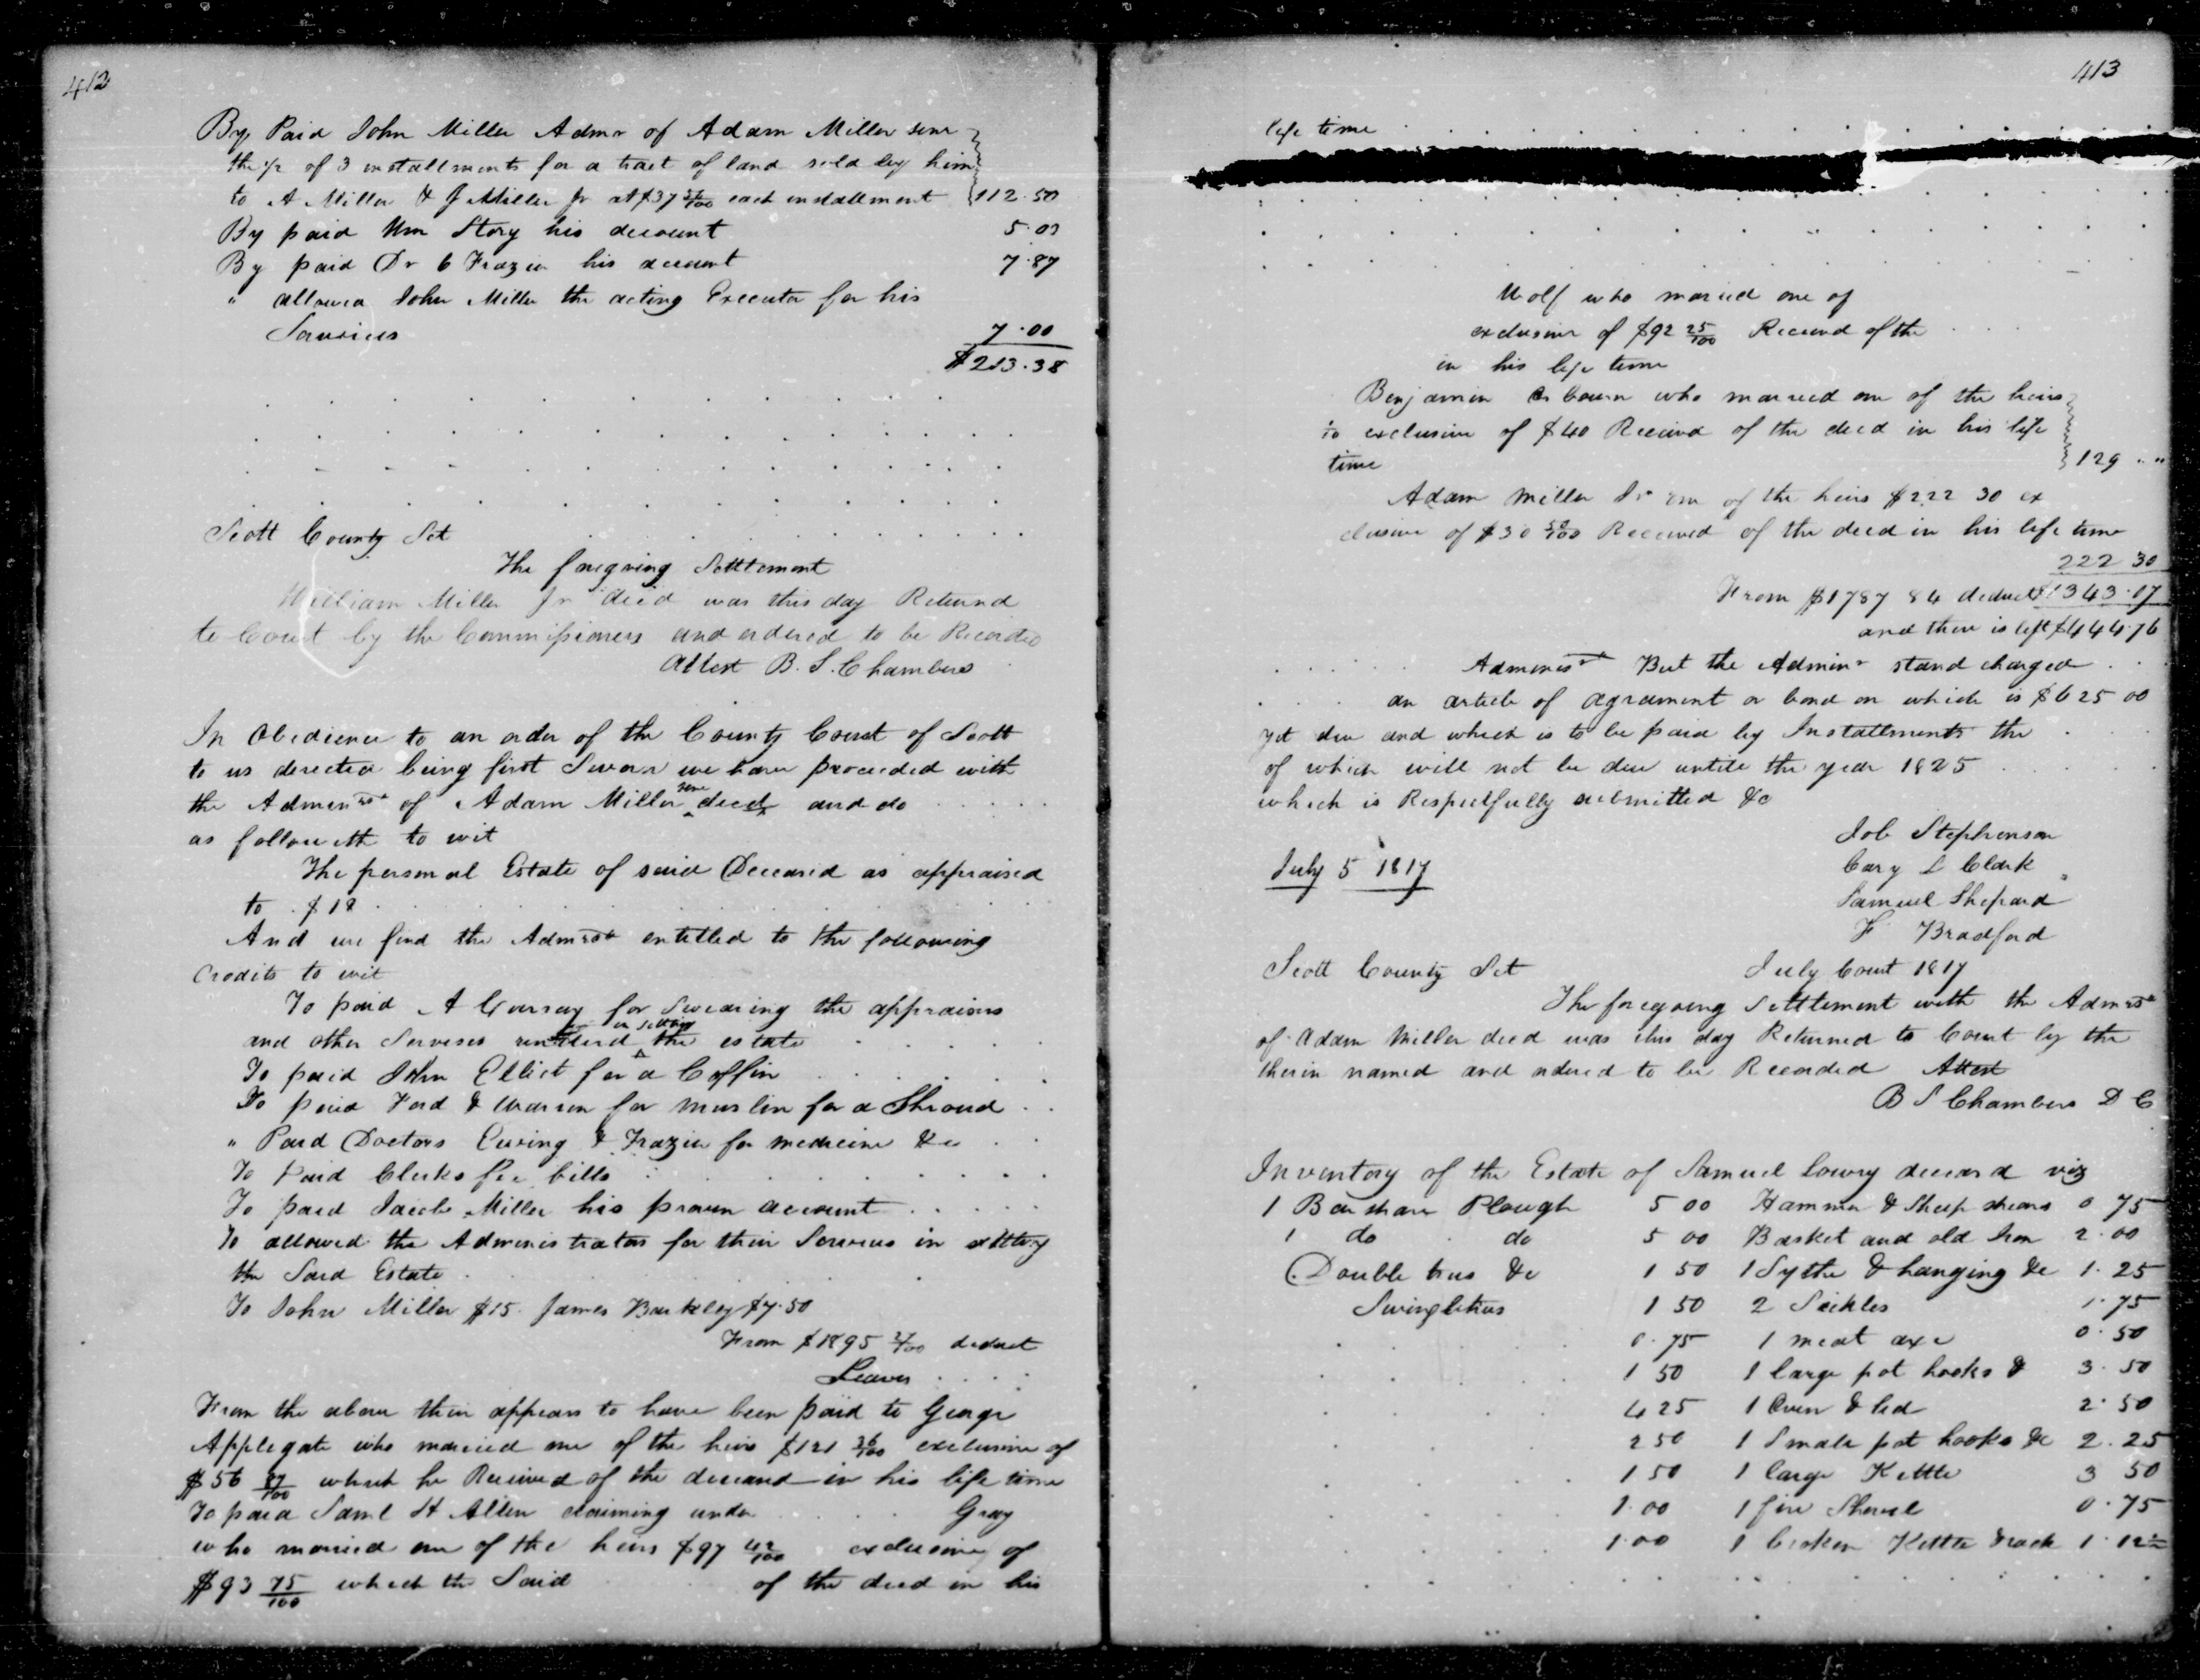 412
By Paid John Miller Admr of Adam Miller senr
the 1/2 of 3 installments for a tract of land sold by him
to A Miller & J Miller jr at $37 50/100 each installment 112.50
By paid Wm Story his account 5.00
By paid Dr C Frazier his account 7.87
" allowed John Miller the acting Executor for his
Services 7.00
$213.38
Scott County Sct
The foregoing Settlement
William Miller Jr decd was this day Returnd
to Court by the Commissioners and ordered to be Recorded
Attest B. S. Chambers
In Obedience to an order of the County Court of Scott
to us directed being first Sworn we have proceeded with
the Adminrs of Adam Miller senr decd and do
as followeth to wit
The personal Estate of said Deceased as appraised
to $18
And we find the Admrs entitled to the following
Credits to wit
To paid A for Swearing the appraisers
and other Services rendered in settling the estate
To paid John Elliot for a Coffin
To paid Ford & Warren for muslin for a Shroud
" Paid Doctors Ewing & Frazier for medicine &c
To Paid Clerks fee bills
To paid Jacob Miller his proven account
To allowed the Administrators for their Services in settling
the Said Estate
To John Miller $15. James Barkley $7.50
From $1895 2/100 deduct
Leaves
From the above their appears to have been paid to George
Applegate who married one of the heirs $121 36/100 exclusive of
$56 87/100 which he Received of the deceased in his life time
To paid Saml H Allen claiming under Gray
who married one of the heirs $97 42/100 exclusive of
$93 75/100 which the Said of the decd in his
413
life time
Wolf who maried one of
exclusive of $92 25/100 Received of the
in his life time
Benjamin Osbourn who married one of the heirs
to exclusive of $40 Received of the decd in his life
time 129 " "
Adam Miller Jr one of the heirs $222 30 ex
clusive of $30 50/100 Received of the decd in his life time
222 30
From $1787 84 deduct $1343.07
and there is left $444.76
But the Adminr stand charged
an article of agreament or bond on which is $625 00
yet due and which is to be paid by Installments the
of which will not be due untill the year 1825
which is Respectfully submitted &c
Job Stephenson
Cary L Clark
July 5 1817
Samuel Shepard
F Bradford
Scott County Sct July Court 1817
The foregoing Settlement with the Admrs
of Adam Miller decd was this day Returned to Court by the
therin named and ordered to be Recorded Attest
B S Chambers D C
Inventory of the Estate of Samuel Lowry deceasd viz
1 Barshare Plough 5 00 Hammer & Sheep shears 0 75
1 do do 5 00 Basket and old Iron 2.00
Double trees &c 1.50 1 Sythe & hanging &c 1.25
Swingletrees 1 50 2 Sickles 1.75
0.75 1 meat axe 0.50
1 50 1 large pot hooks & 3.50
4 25 1 Oven & led 2.50
2 50 1 Smale pot hooks &c 2.25
1 50 1 large Kettle 3 50
1.00 1 fire Shovel 0.75
1.00 1 broken Kettle & rack 1.12½